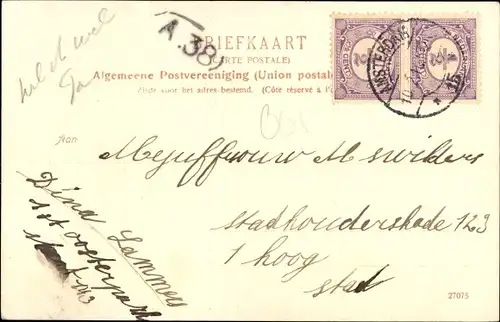 A.38
BRIEFKAART
(CARTE POSTALE)
Algemeene Postvereeniging (Union postale
Zijde voor het adres bestemd. (Côté réservé à l'
AMSTERDAM
15
Aan
Mejuffrouw M Swilders
stadhouderskade 123
1 hoog
stad
Dina Lammers
1st oosterpark
27075